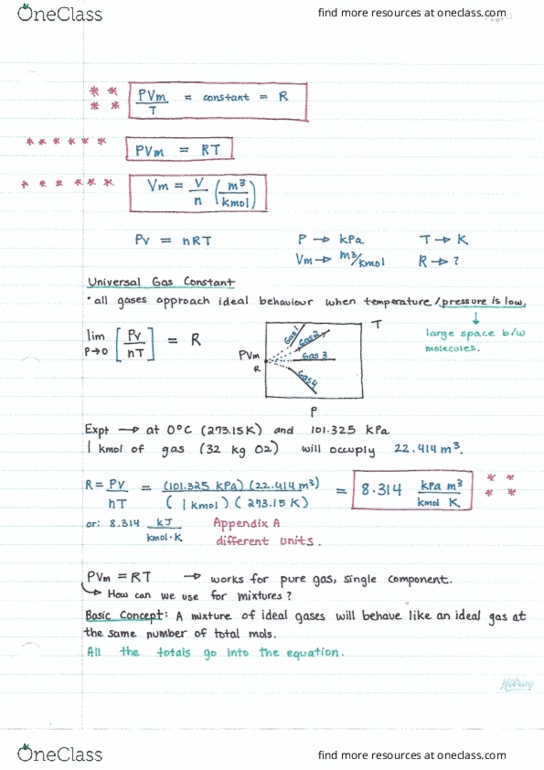 OneClass find more resources at oneclass.com
* * PVm/T = constant = R
* *
* * * * * * PVm = RT
* * * * * * Vm = V/n (m³/kmol)
PV = nRT P → kPa T → K
Vm → m³/kmol R → ?
Universal Gas Constant
• all gases approach ideal behaviour when temperature/pressure is low.
↓
large space b/w
molecules.
lim P→0 [PV/nT] = R
T
PVm
R
Gas 1
Gas 2
Gas 3
Gas 4
P
Expt → at 0°C (273.15K) and 101.325 kPa
1 kmol of gas (32 kg O2) will occuply 22.414 m³.
R = PV/nT = (101.325 kPa)(22.414 m³)/(1 kmol)(273.15 K) = 8.314 kPa m³/kmol K * *
* *
or: 8.314 kJ/kmol·K Appendix A
different units.
PVm = RT → works for pure gas, single component.
↳ How can we use for mixtures?
Basic Concept: A mixture of ideal gases will behave like an ideal gas at
the same number of total mols.
All the totals go into the equation.
Hilroy
OneClass find more resources at oneclass.com